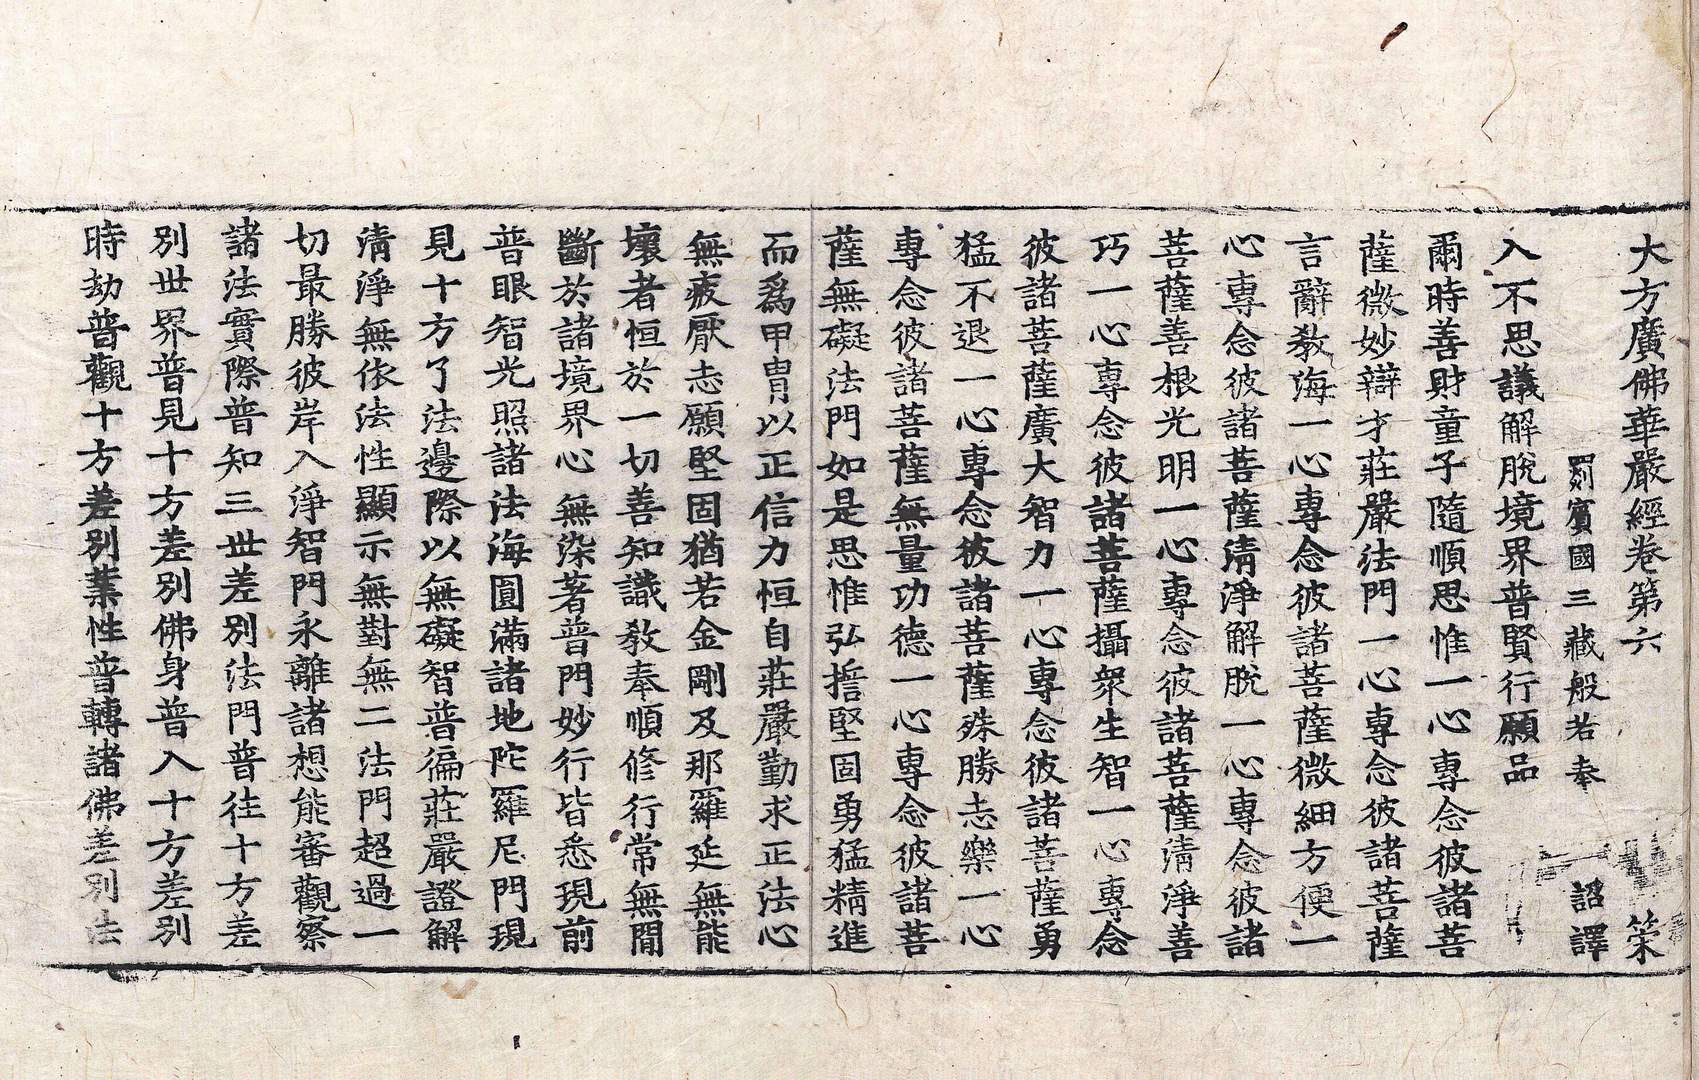 大方廣佛華嚴經卷第六 策
罽賓國三藏般若奉 詔譯
入不思議解脫境界普賢行願品
爾時善財童子隨順思惟一心專念彼諸菩
薩微妙辯才莊嚴法門一心專念彼諸菩薩
言辭教海一心專念彼諸菩薩微細方便一
心專念彼諸菩薩清淨解脫一心專念彼諸
菩薩善根光明一心專念彼諸菩薩清淨善
巧一心專念彼諸菩薩攝衆生智一心專念
彼諸菩薩廣大智力一心專念彼諸菩薩勇
猛不退一心專念彼諸菩薩殊勝志樂一心
專念彼諸菩薩無量功德一心專念彼諸菩
薩無礙法門如是思惟弘誓堅固勇猛精進
而爲甲冑以正信力恒自莊嚴勤求正法心
無疲厭志願堅固猶若金剛及那羅延無能
壞者恒於一切善知識教奉順修行常無間
斷於諸境界心無染著普門妙行皆悉現前
普眼智光照諸法海圓滿諸地陀羅尼門現
見十方了法邊際以無礙智普徧莊嚴證解
清淨無依法性顯示無對無二法門超過一
切最勝彼岸入淨智門永離諸想能審觀察
諸法實際普知三世差別法門普往十方差
別世界普見十方差別佛身普入十方差別
時劫普觀十方差別業性普轉諸佛差別法